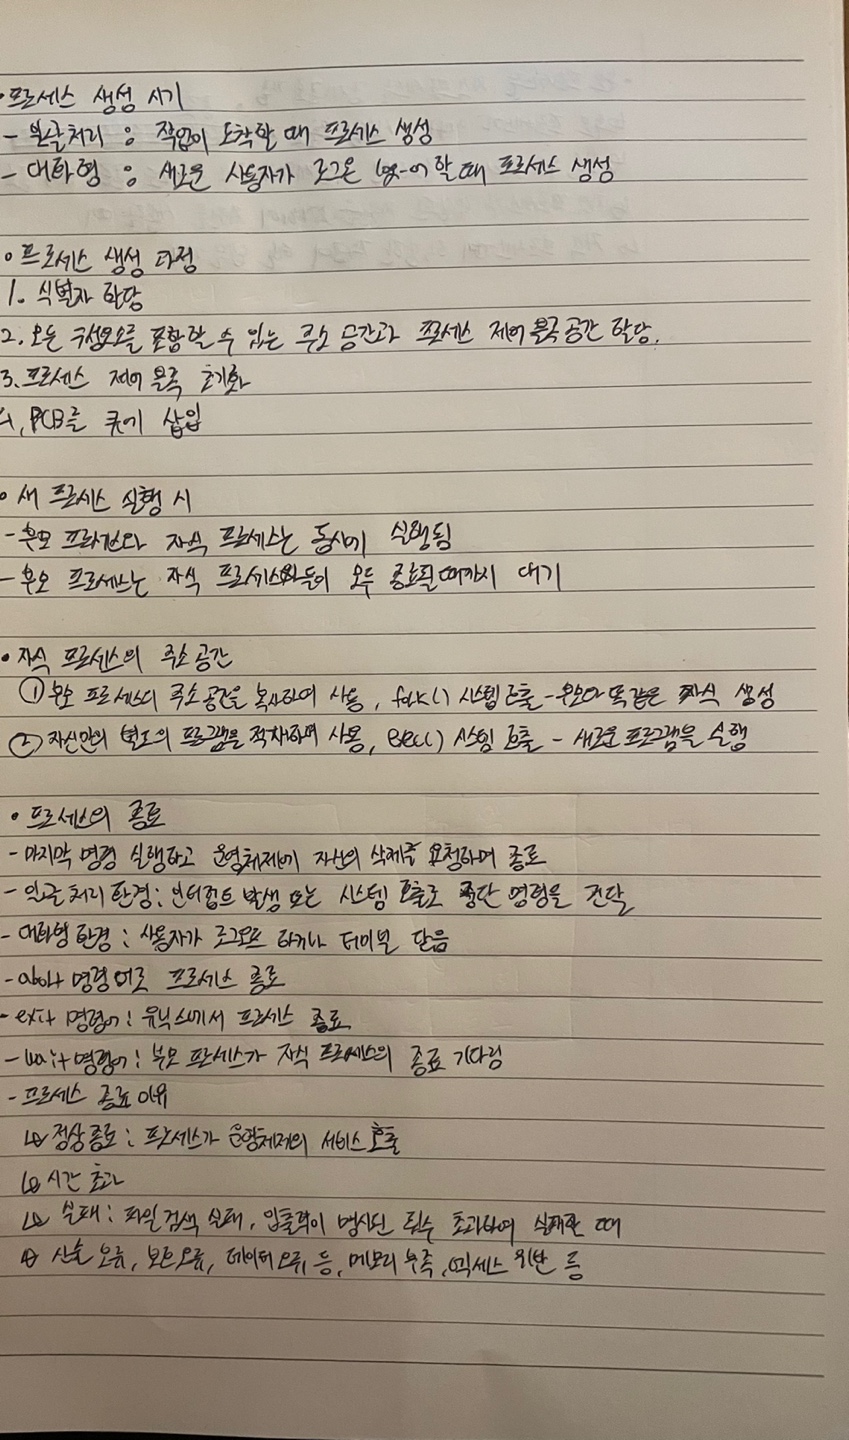 • 프로세스 생성 시기
- 일괄처리 : 작업이 도착할 때 프로세스 생성
- 대화형 : 새로운 사용자가 로그온 할 때 프로세스 생성
• 프로세스 생성 과정
1. 식별자 할당
2. 모든 구성요소를 포함할 수 있는 주소 공간과 프로세스 제어 블록 공간 할당.
3. 프로세스 제어 블록 초기화
4. PCB를 큐에 삽입
• 새 프로세스 실행 시
- 부모 프로세스와 자식 프로세스는 동시에 실행됨
- 부모 프로세스는 자식 프로세스들이 모두 종료될 때까지 대기
• 자식 프로세스의 주소 공간
① 부모 프로세스의 주소 공간을 복사하여 사용, fork() 시스템 호출 - 부모와 똑같은 자식 생성
② 자신만의 별도의 프로그램을 적재하여 사용, exec() 시스템 호출 - 새로운 프로그램을 실행
• 프로세스의 종료
- 마지막 명령 실행하고 운영체제에 자신의 삭제를 요청하며 종료
- 일괄 처리 환경 : 인터럽트 발생 또는 시스템 호출로 중단 명령을 전달
- 대화형 환경 : 사용자가 로그오프 하거나 터미널 닫음
- abort 명령어로 프로세스 종료
- exit 명령어 : 유닉스에서 프로세스 종료
- wait 명령어 : 부모 프로세스가 자식 프로세스의 종료 기다림
- 프로세스 종료 이유
↳ 정상종료 : 프로세스가 운영체제의 서비스 호출
↳ 시간 초과
↳ 실패 : 파일 검색 실패, 입출력이 명시된 횟수 초과하여 실패할 때
↳ 산술 오류, 보호 오류, 데이터 오류 등, 메모리 부족, 액세스 위반 등